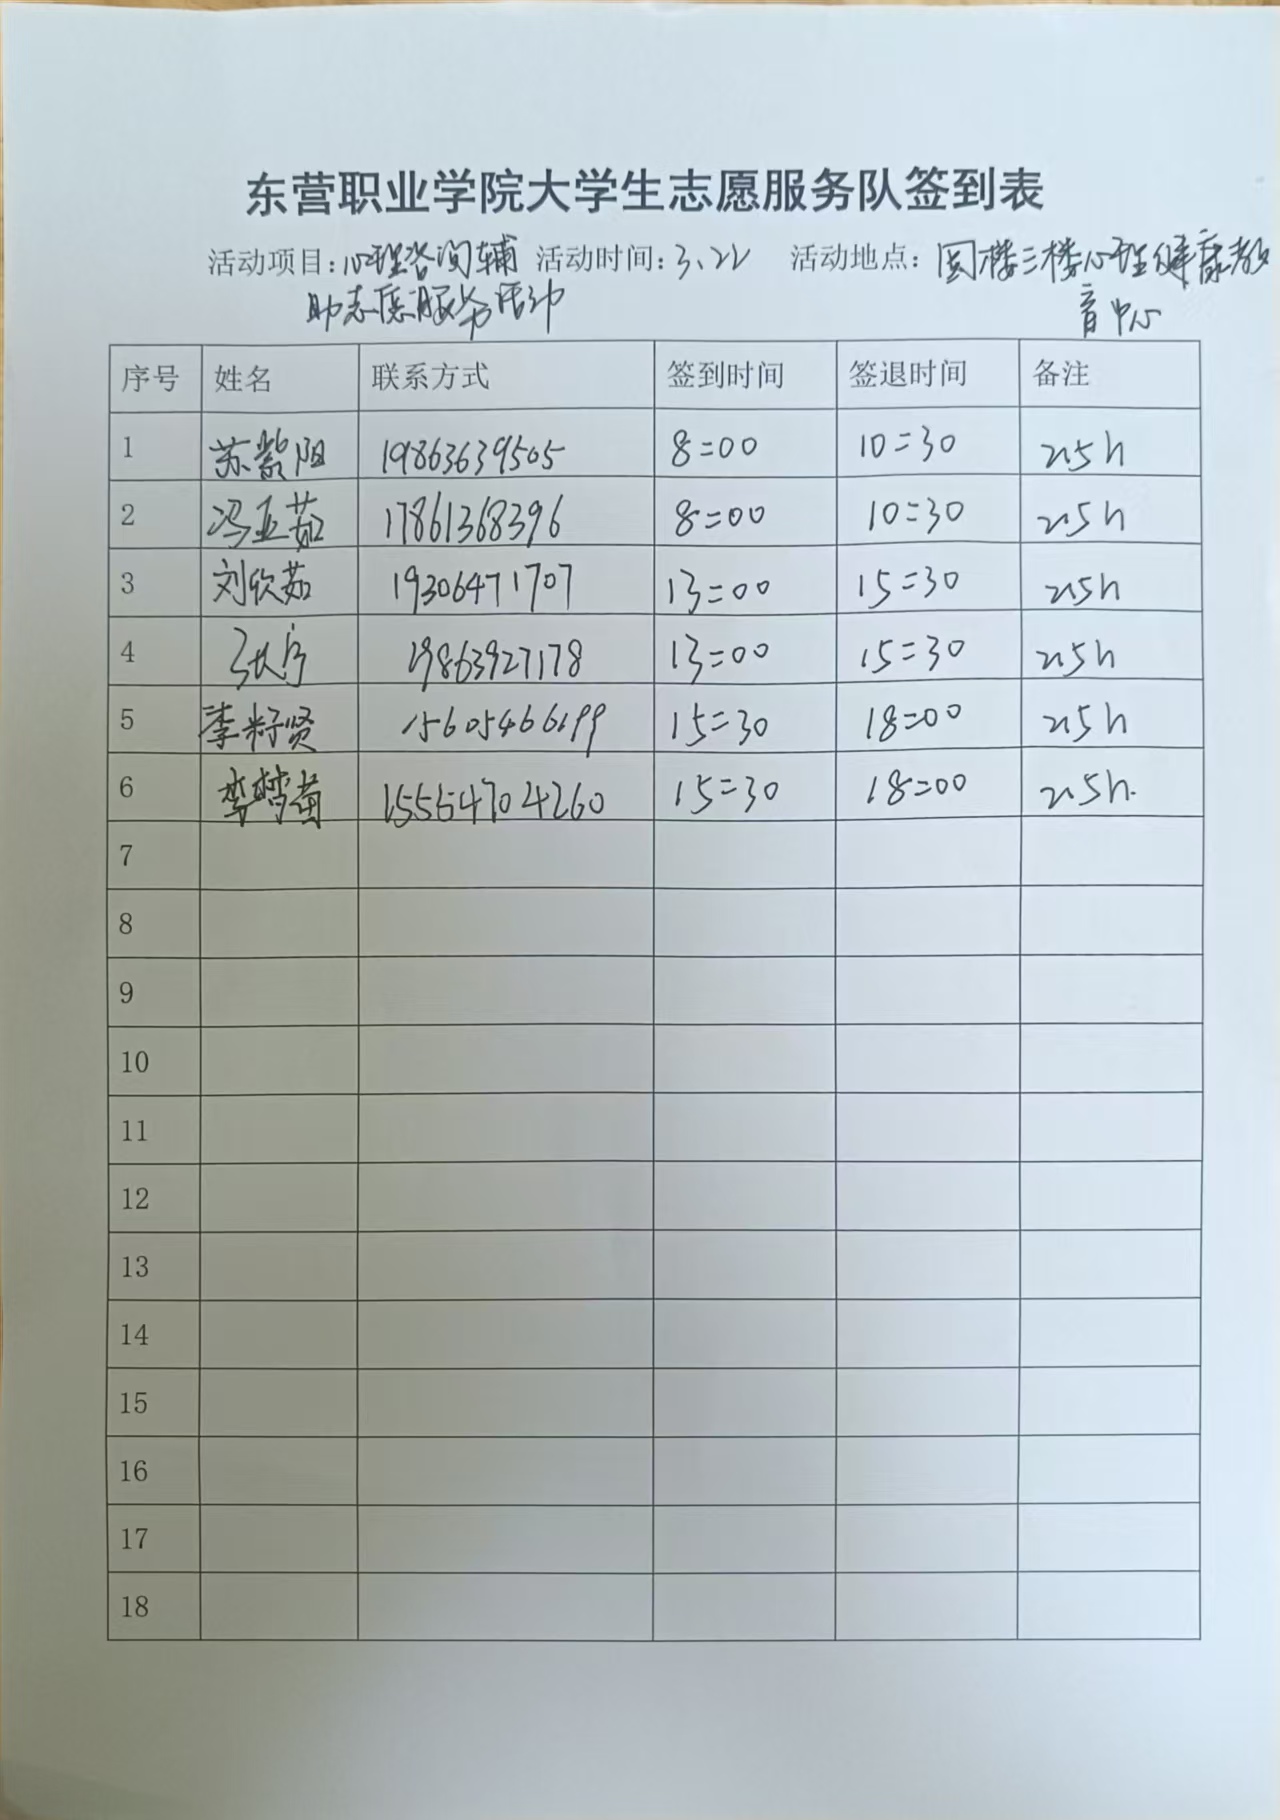 东营职业学院大学生志愿服务队签到表
活动项目：心理咨询辅 活动时间：3.22 活动地点：圆楼三楼心理健康教
助志愿服务活动 育中心
序号 姓名 联系方式 签到时间 签退时间 备注
1 苏紫阳 19863639505 8:00 10:30 2.5h
2 冯亚茹 17861368396 8:00 10:30 2.5h
3 刘欣茹 19306471707 13:00 15:30 2.5h
4 19863927178 13:00 15:30 2.5h
5 李籽贤 15605466199 15:30 18:00 2.5h
6 李梦 15554704260 15:30 18:00 2.5h.
7
8
9
10
11
12
13
14
15
16
17
18